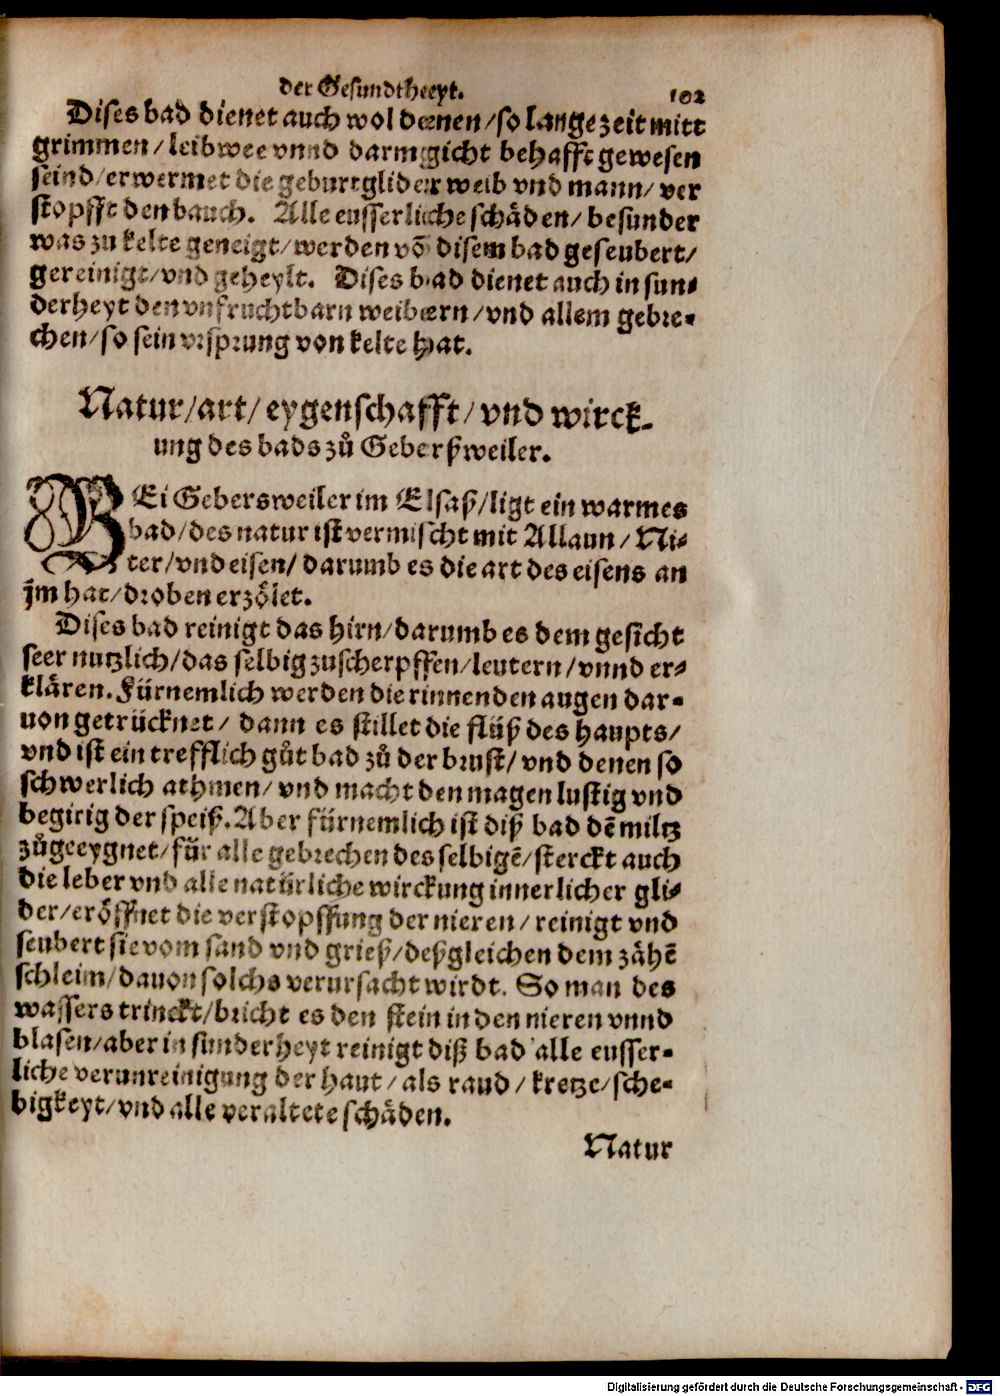 der Gesundtheeyt.
102
Dises bad dienet auch wol denen/so lange zeit mitt
grimmen/leibwee vnnd darmgicht behafft gewesen
seind/erwermet die geburtglider weib vnd mann/ver
stopfft den bauch. Alle eusserliche schäden/besunder
was zu kelte geneigt/werden võ disem bad geseubert/
gereinigt/vnd geheylt. Dises bad dienet auch in sun-
derheyt den vnfruchtbarn weibern/vnd allem gebre-
chen/so sein vrsprung von kelte hat.
Natur/art/eygenschafft/vnd wirck-
ung des bads zů Geberßweiler.
BEi Gebersweiler im Elsaß/ligt ein warmes
bad/des natur ist vermischt mit Allaun/Ni-
ter/vnd eisen/darumb es die art des eisens an
jm hat/droben erzölet.
Dises bad reinigt das hirn/darumb es dem gesicht
seer nutzlich/das selbig zuscherpffen/leutern/vnnd er-
klären. Fürnemlich werden die rinnenden augen dar-
uon getrücknet/dann es stillet die flüß des haupts/
vnd ist ein trefflich gůt bad zů der brust/vnd denen so
schwerlich athmen/vnd macht den magen lustig vnd
begirig der speiß. Aber fürnemlich ist diß bad dẽ miltz
zůgeeygnet/für alle gebrechen des selbigẽ/sterckt auch
die leber vnd alle natürliche wirckung innerlicher gli-
der/eröffnet die verstopffung der nieren/reinigt vnd
seubert sie vom sand vnd grieß/deßgleichen dem zähẽ
schleim/dauon solchs verursacht wirdt. So man des
wassers trinckt/bricht es den stein in den nieren vnnd
blasen/aber in sunderheyt reinigt diß bad alle eusser-
liche verunreinigung der haut/als raud/kretze/sche-
bigkeyt/vnd alle veraltete schäden.
Natur
Digitalisierung gefördert durch die Deutsche Forschungsgemeinschaft - DFG